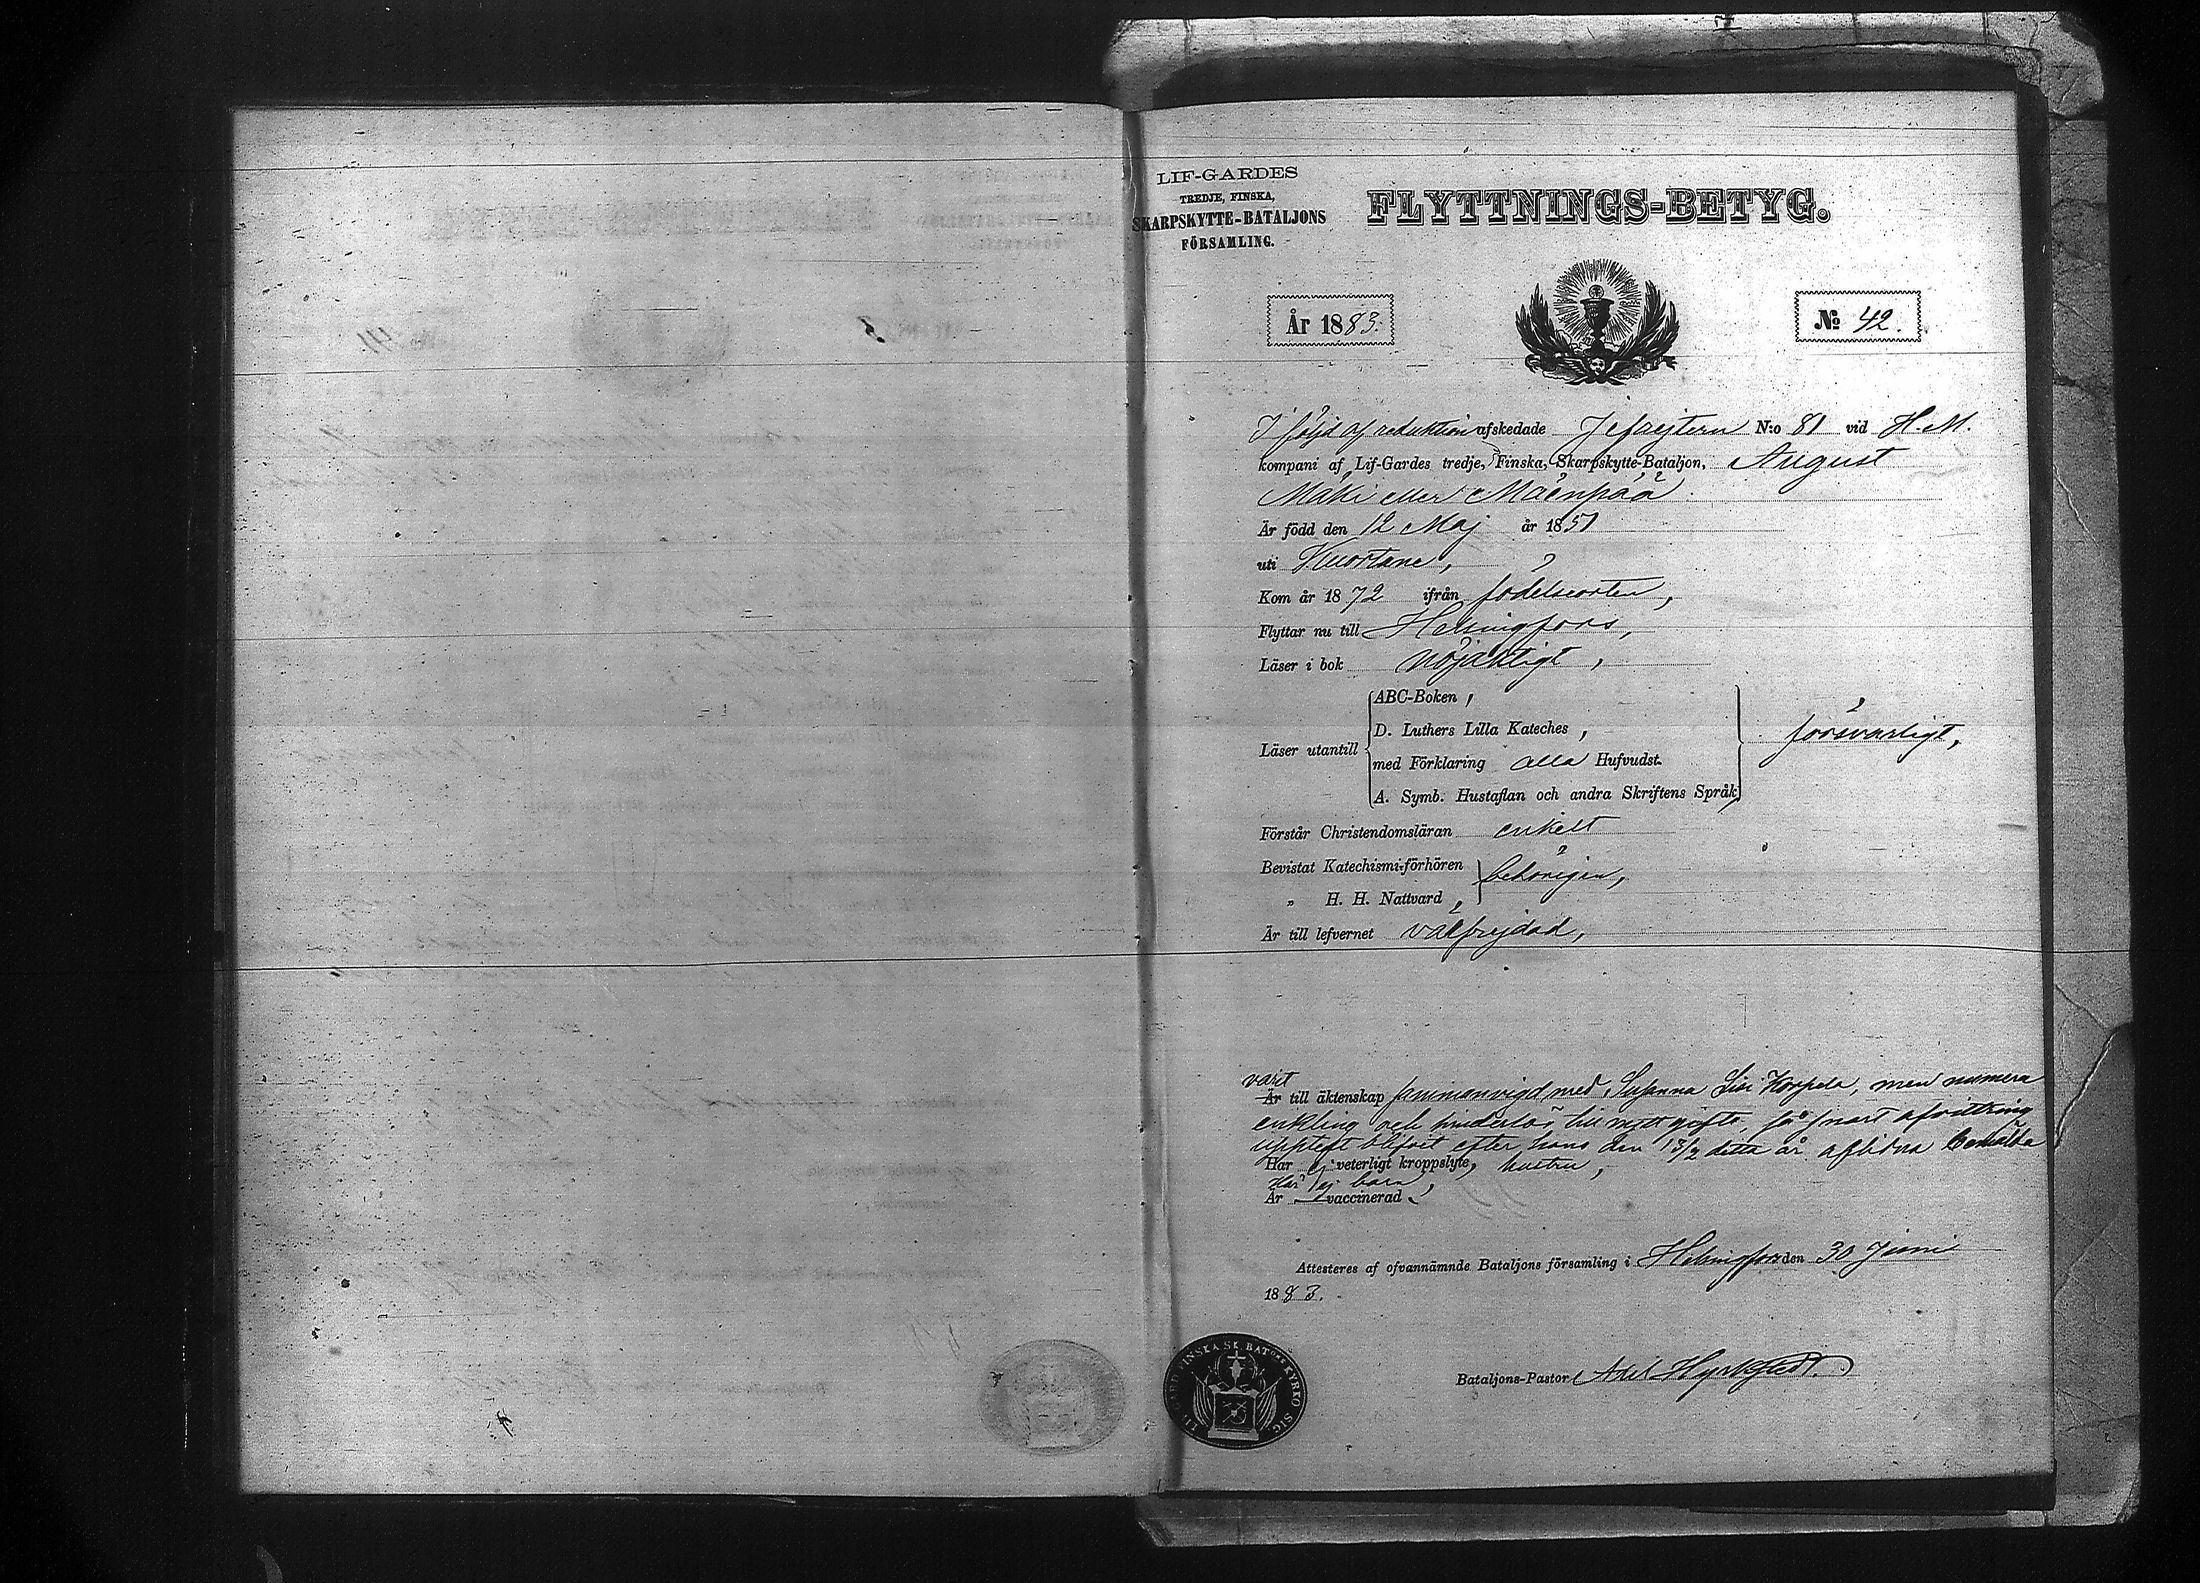 LIF-GARDES
TREDJE, FINSKA,
SKARPSKYTTE-BATALJONS
FÖRSAMLING.
FLYTTNINGS-BETYG.
År 1883.
№ 42.
I följd af reduktion afskedade Jefrejtern N:o 81 vid H. M.
kompani af Lif-Gardes tredje, Finska, Skarpskytte-Bataljon, August
Mäki eller Mäenpää.
Är född den 12 Maj år 1851
uti Kuortane,
Kom år 1872 ifrån födelseorten,
Flyttar nu till Helsingfors,
Läser i bok nöjaktigt,
Läser utantill
ABC-Boken,
D. Luthers Lilla Kateches,
med Förklaring alla Hufvudst.
A. Symb. Hustaflan och andra Skriftens Språk,
försvarligt,
Förstår Christendomsläran enkelt
Bevistat Katechismi-förhören
„ H. H. Nattvard,
behörigen,
Är till lefvernet välfrejdad,
varit
Är till äktenskap sammanvigd med Susanna Lisi Korpela, men numera
enkling och hinderlös till nytt gifte, så snart afvittring
upptett blifvit efter hans den 13/2 detta år aflidna bemälda
Har ej veterligt kroppslyte, hustru,
Har ej barn,
Är vaccinerad
Attesteres af ofvannämnde Bataljons församling i Helsingfors den 30 Juni
1883.
Bataljons-Pastor Axel Hyrkstedt.
FINSKA SK. BAT KYRKO SIG.